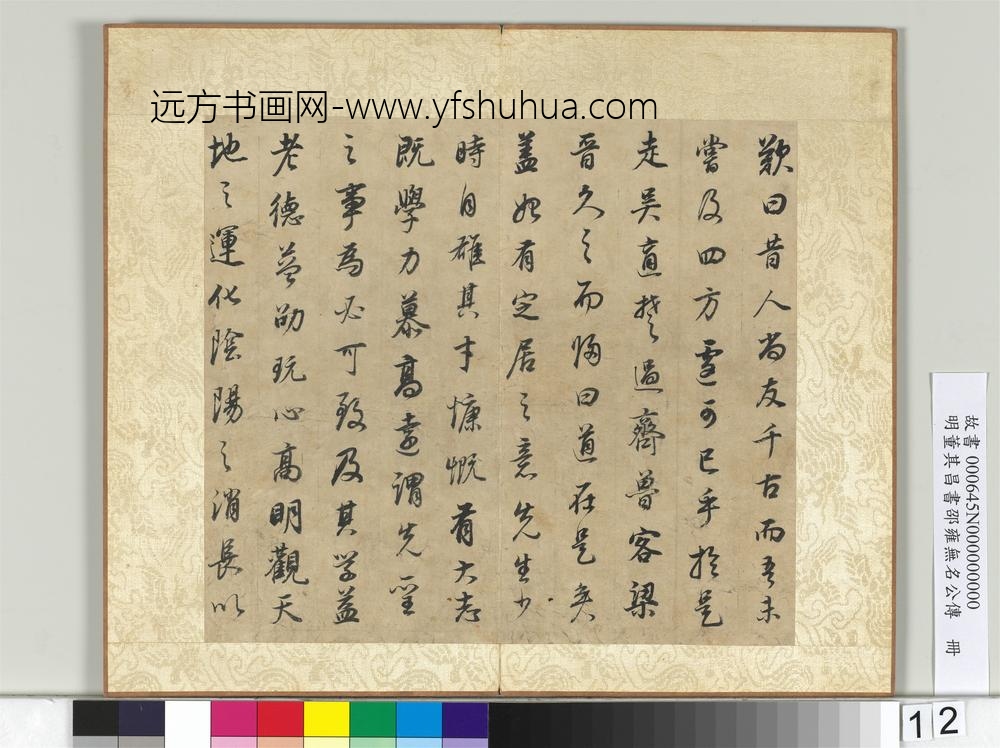 远方书画网-www.yfshuhua.com
歎曰昔人尚友千古而吾未
嘗及四方遽可已乎於是
走吳適楚過齊魯客梁
晉久之而歸曰道在是矣
蓋始有定居之意先生少
時自雄其才慷慨有大志
既學力慕高遠謂先聖
之事為必可致及其學益
老德益劭玩心高明觀天
地之運化陰陽之消長以
故書 000645N000000000
明董其昌書邵雍無名公傳 冊
12